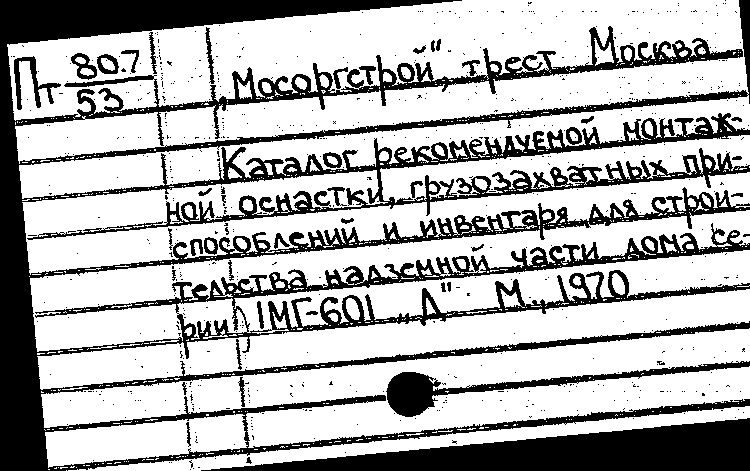 Пт 80.7/53
„Мосоргстрой", трест Москва
Каталог рекомендуемой монтаж-
ной оснастки, грузозахватных при-
способлений и инвентаря для строи-
тельства надземной части дома се-
рии 1МГ-601 „Д" М., 1970